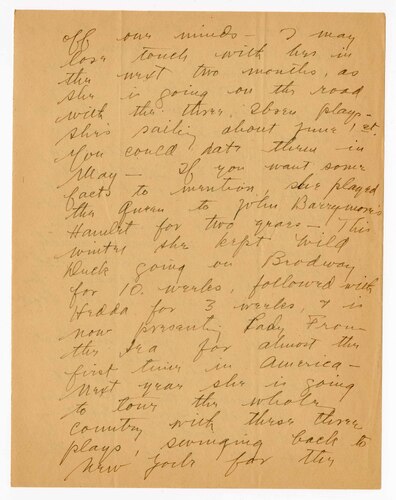 off our minds — I may
lose touch with her in
the next two months, as
she is going on the road
with the three Ibsen plays —
she's sailing about June 1st.
You could date them in
May — If you want some
facts to mention, she played
the Queen to John Barrymore's
Hamlet for two years — This
winter she kept Wild
Duck going on Brodway
for 10 weeks, followed with
Hedda for 3 weeks, & is
now presenting Lady From
the Sea for almost the
first time in America —
Next year she is going
to tour the whole
country with these three
plays, swinging back to
New York for the